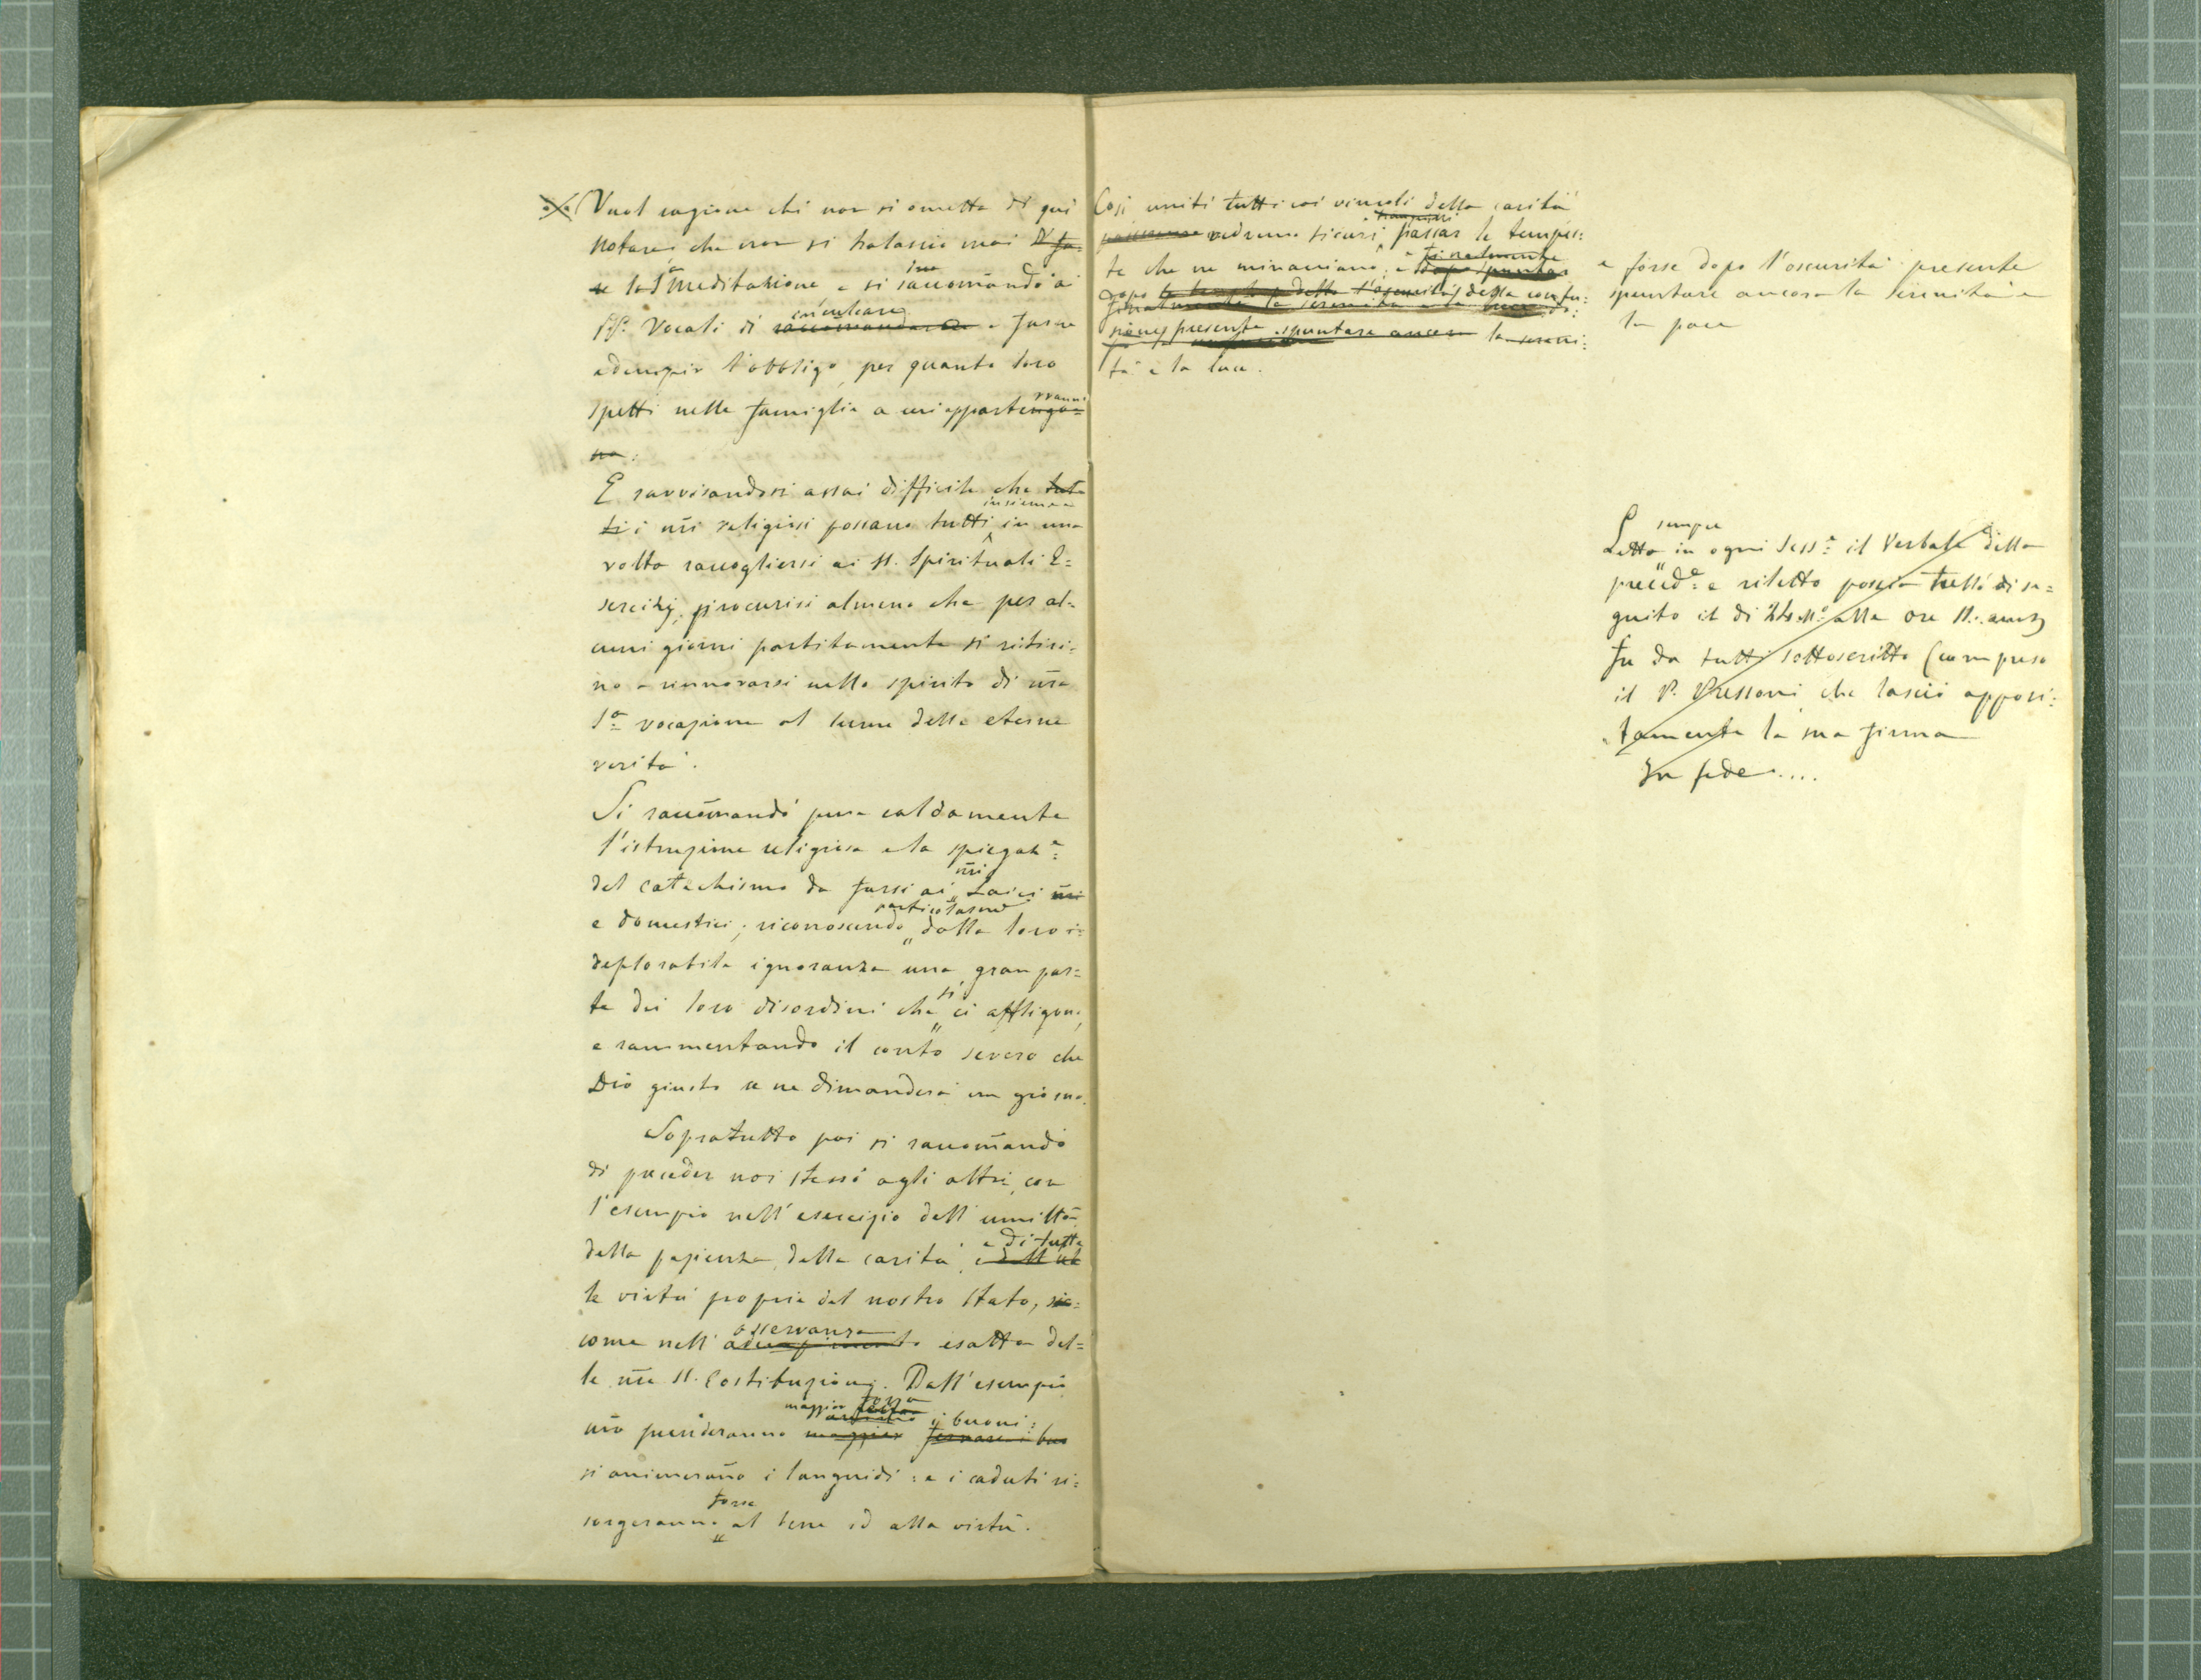 Vuol ragione chi non si ometta di qui
notare, che non si tralasci mai d' fa-
re la Sª meditazione e si raccomandò ai
inculcare
PP. Vocali di raccomandare e farne
adempir l'obbligo, per quanto loro
spetti nella famiglia a cui apparterranno
no.
E ravvisandosi assai difficile che tut
insieme
ti i nri religiosi possano tutti in una
volta raccogliersi ai SS. Spirituali E=
sercizj, procurisi almeno che per al=
cuni giorni partitamente si ritiri=
no a rinnovarsi nello spirito di nra
Sª vocazione al lume delle eterne
verità.
Si raccomandò pure caldamente
l'istruzione religiosa e la spiegazª:
nri
del catechismo da farsi ai Laici nri
particolarme
e domestici; riconoscendo dalla loro
deplorabile ignoranza una gran par=
si
te dei loro disordini che ci affligono,
e rammentando il conto severo che
Dio giusto ce ne dimanderà un giorno.
Sopratutto poi si raccomandò
di preceder noi stessi agli altri con
l'esempio nell'esercizio dell'umiltà
e di tutte
della pazienza, della carità, e dell'ub
le virtù proprie del nostro stato, sic=
osservanza
come nell'adempimento esatta del=
le nre SS. Costituzioni. Dall'esempio
maggior forza
nro prenderanno maggior i buoni:
si animeranno i languidi: e i caduti ri=
forse
sorgeranno al bene ed alla virtù.
Così uniti tutti coi vincoli della carità
tranquilli
vedremo sicuri passar le tempes:
finalmente
te che ne minacciano, e dopo spuntar
dopo l'oscurità della confu:
finalmente la serenità e la luce
sione presente spuntare ancora la sereni:
tà e la luce.
e forse dopo l'oscurità presente
spuntare ancora la serenità e
la pace
sempre
Letto in ogni Sessª: il Verbale della
precedª: e riletto poscia tutto di se=
guito il di alle ore 11. antz
fu da tutti sottoscritto (compreso
il P. che lasciò apposi:
tamente la sua firma
In fede....